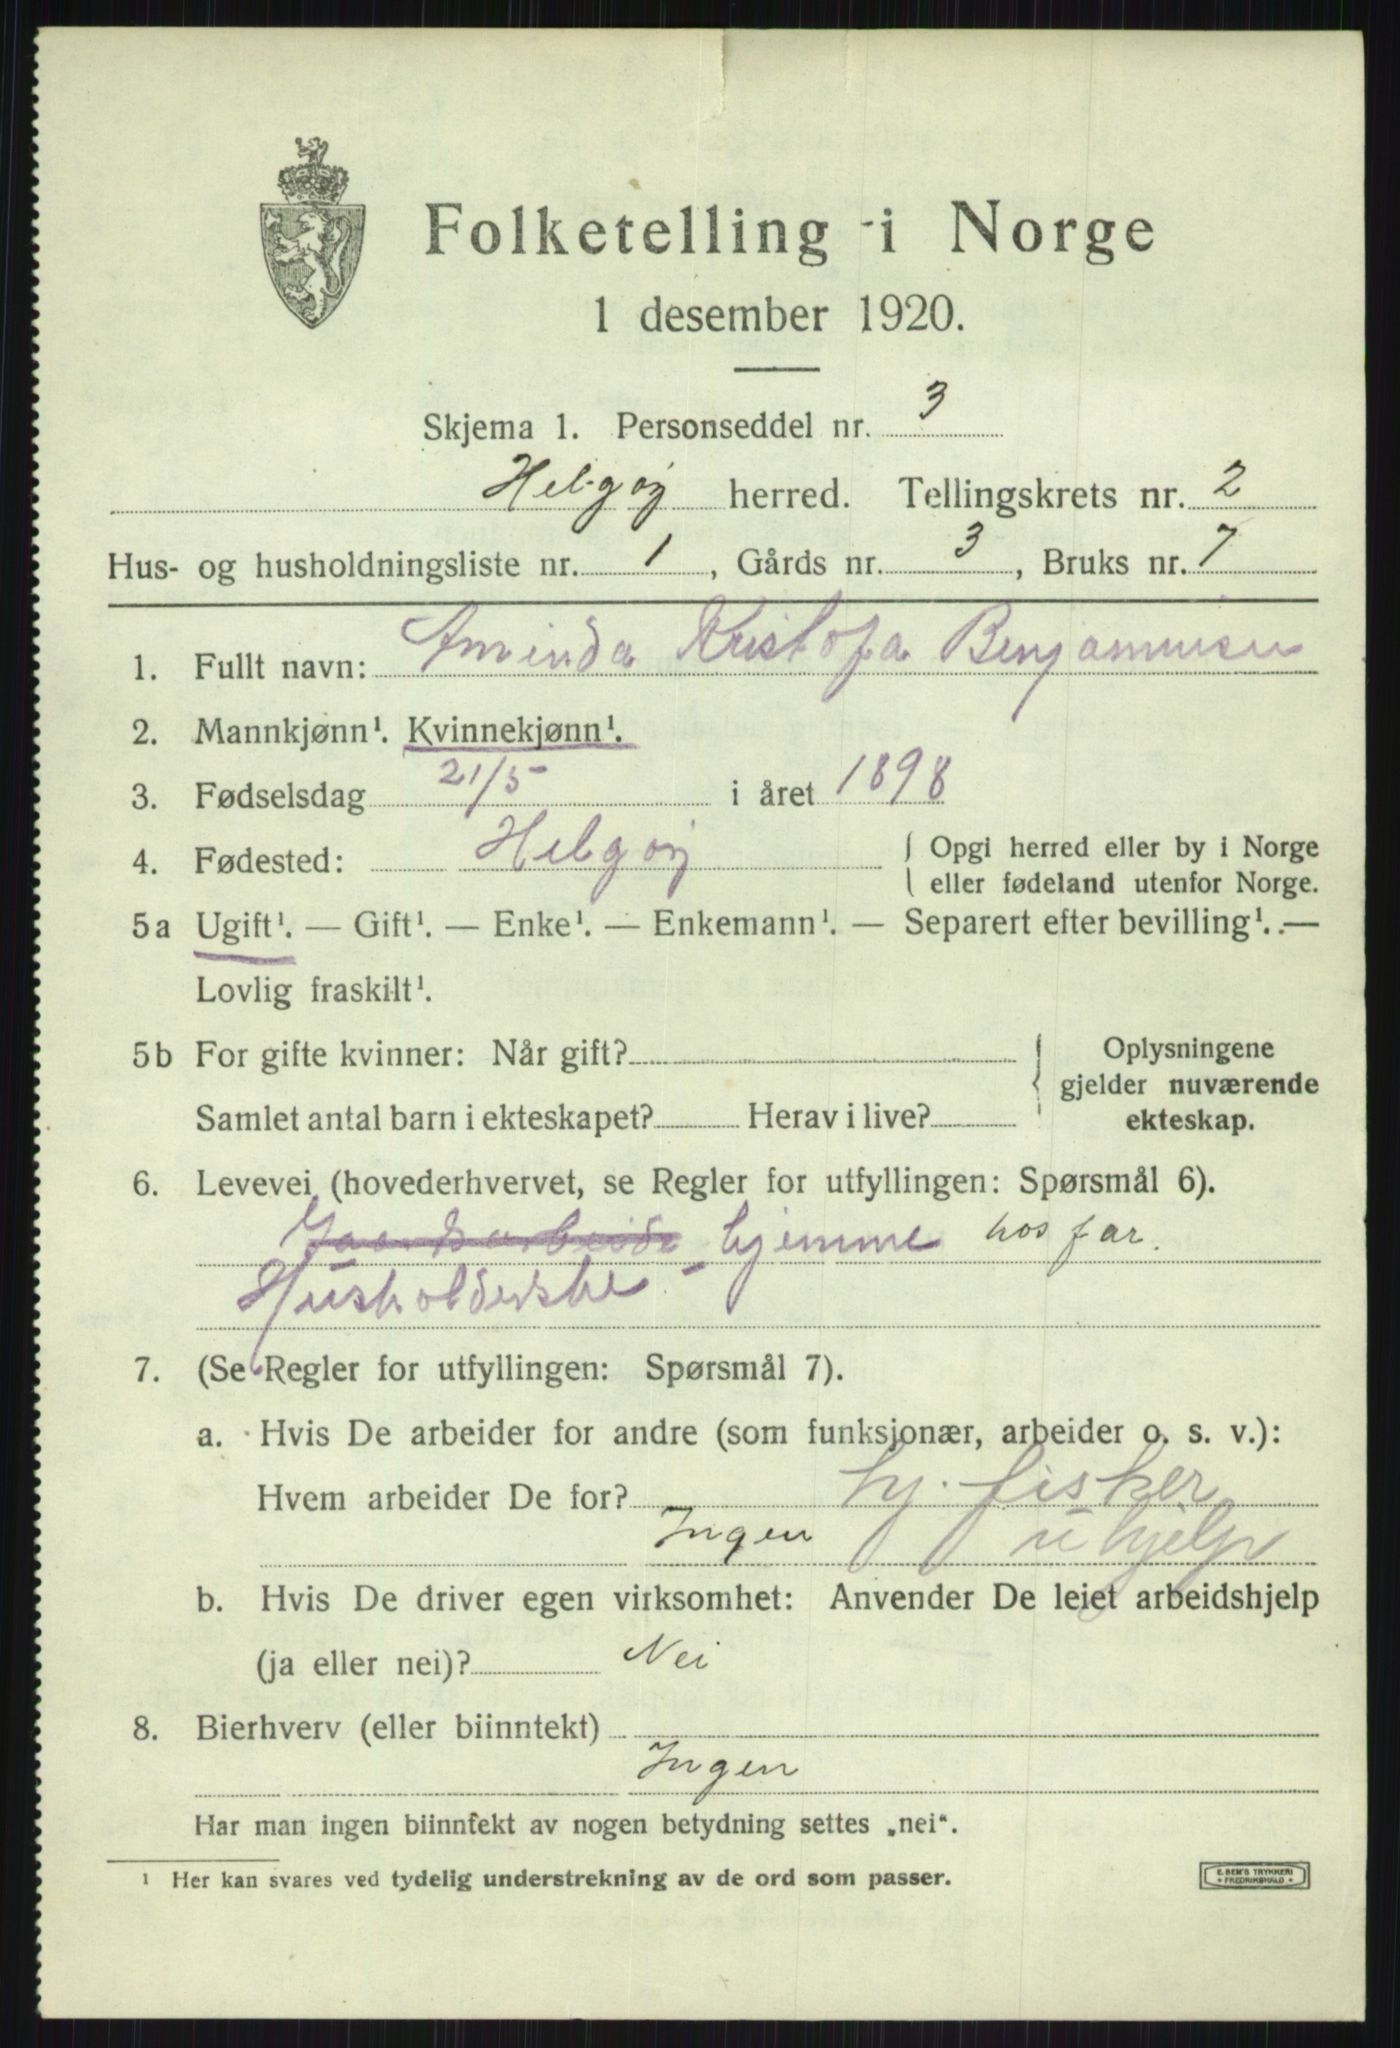 Folketelling i Norge
1 desember 1920.
Skjema 1. Personseddel nr. 3
Helgøy herred. Tellingskrets nr. 2
Hus- og husholdningsliste nr. 1, Gårds nr. 3, Bruks nr. 7
1. Fullt navn: Aminda Kristofa Benjaminsen
2. Mannkjønn¹. Kvinnekjønn¹.
3. Fødselsdag 21/5 i året 1898
4. Fødested: Helgøy { Opgi herred eller by i Norge
eller fødeland utenfor Norge.
5a Ugift¹. — Gift¹. — Enke¹. — Enkemann¹. — Separert efter bevilling¹. —
Lovlig fraskilt¹.
5b For gifte kvinner: Når gift? { Oplysningene
gjelder nuværende
Samlet antal barn i ekteskapet? Herav i live? ekteskap.
6. Levevei (hovederhvervet, se Regler for utfyllingen: Spørsmål 6).
Gaardsarbeide hjemme hos far.
Husholderske
7. (Se Regler for utfyllingen: Spørsmål 7).
a. Hvis De arbeider for andre (som funksjonær, arbeider o. s. v.):
Hvem arbeider De for? hj. fisker
Ingen u hjelp
b. Hvis De driver egen virksomhet: Anvender De leiet arbeidshjelp
(ja eller nei)? Nei
8. Bierhverv (eller biinntekt)
Ingen
Har man ingen biinntekt av nogen betydning settes „nei“.
¹ Her kan svares ved tydelig understrekning av de ord som passer.
E. SEM'S TRYKKERI
• FREDRIKSHALD •